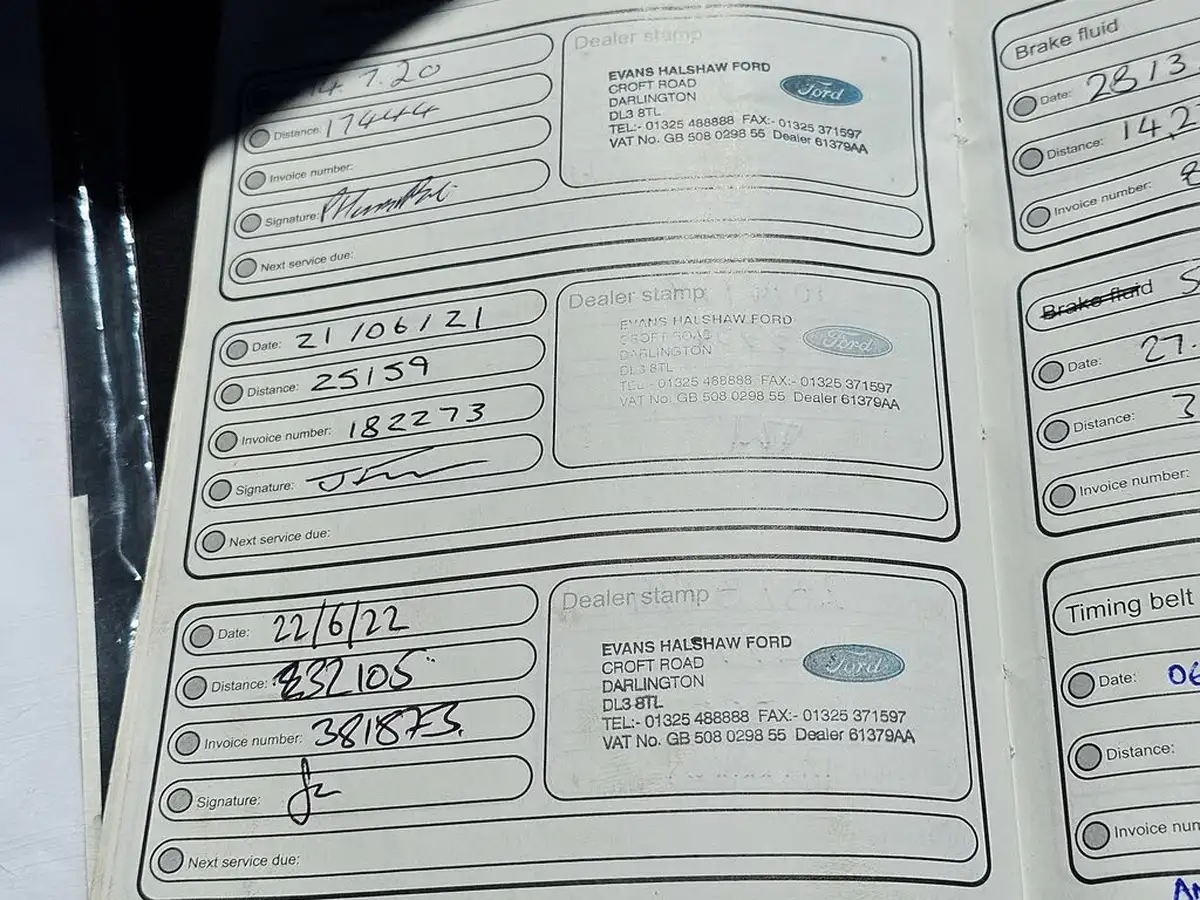 14.7.20
Distance: 17444
Invoice number:
Signature:
Next service due:
Dealer stamp
EVANS HALSHAW FORD
CROFT ROAD
DARLINGTON
DL3 8TL
TEL:- 01325 488888 FAX:- 01325 371597
VAT No. GB 508 0298 55 Dealer 61379AA
Ford
Date: 21/06/21
Distance: 25159
Invoice number: 182273
Signature:
Next service due:
Dealer stamp
EVANS HALSHAW FORD
CROFT ROAD
DARLINGTON
DL3 8TL
TEL:- 01325 488888 FAX:- 01325 371597
VAT No. GB 508 0298 55 Dealer 61379AA
Ford
Date: 22/6/22
Distance: 32105
Invoice number: 381873
Signature:
Next service due:
Dealer stamp
EVANS HALSHAW FORD
CROFT ROAD
DARLINGTON
DL3 8TL
TEL:- 01325 488888 FAX:- 01325 371597
VAT No. GB 508 0298 55 Dealer 61379AA
Ford
Brake fluid
Date: 28/3
Distance: 14,2
Invoice number:
Brake fluid S
Date: 27.
Distance: 3
Invoice number:
Timing belt
Date: 06
Distance:
Invoice num